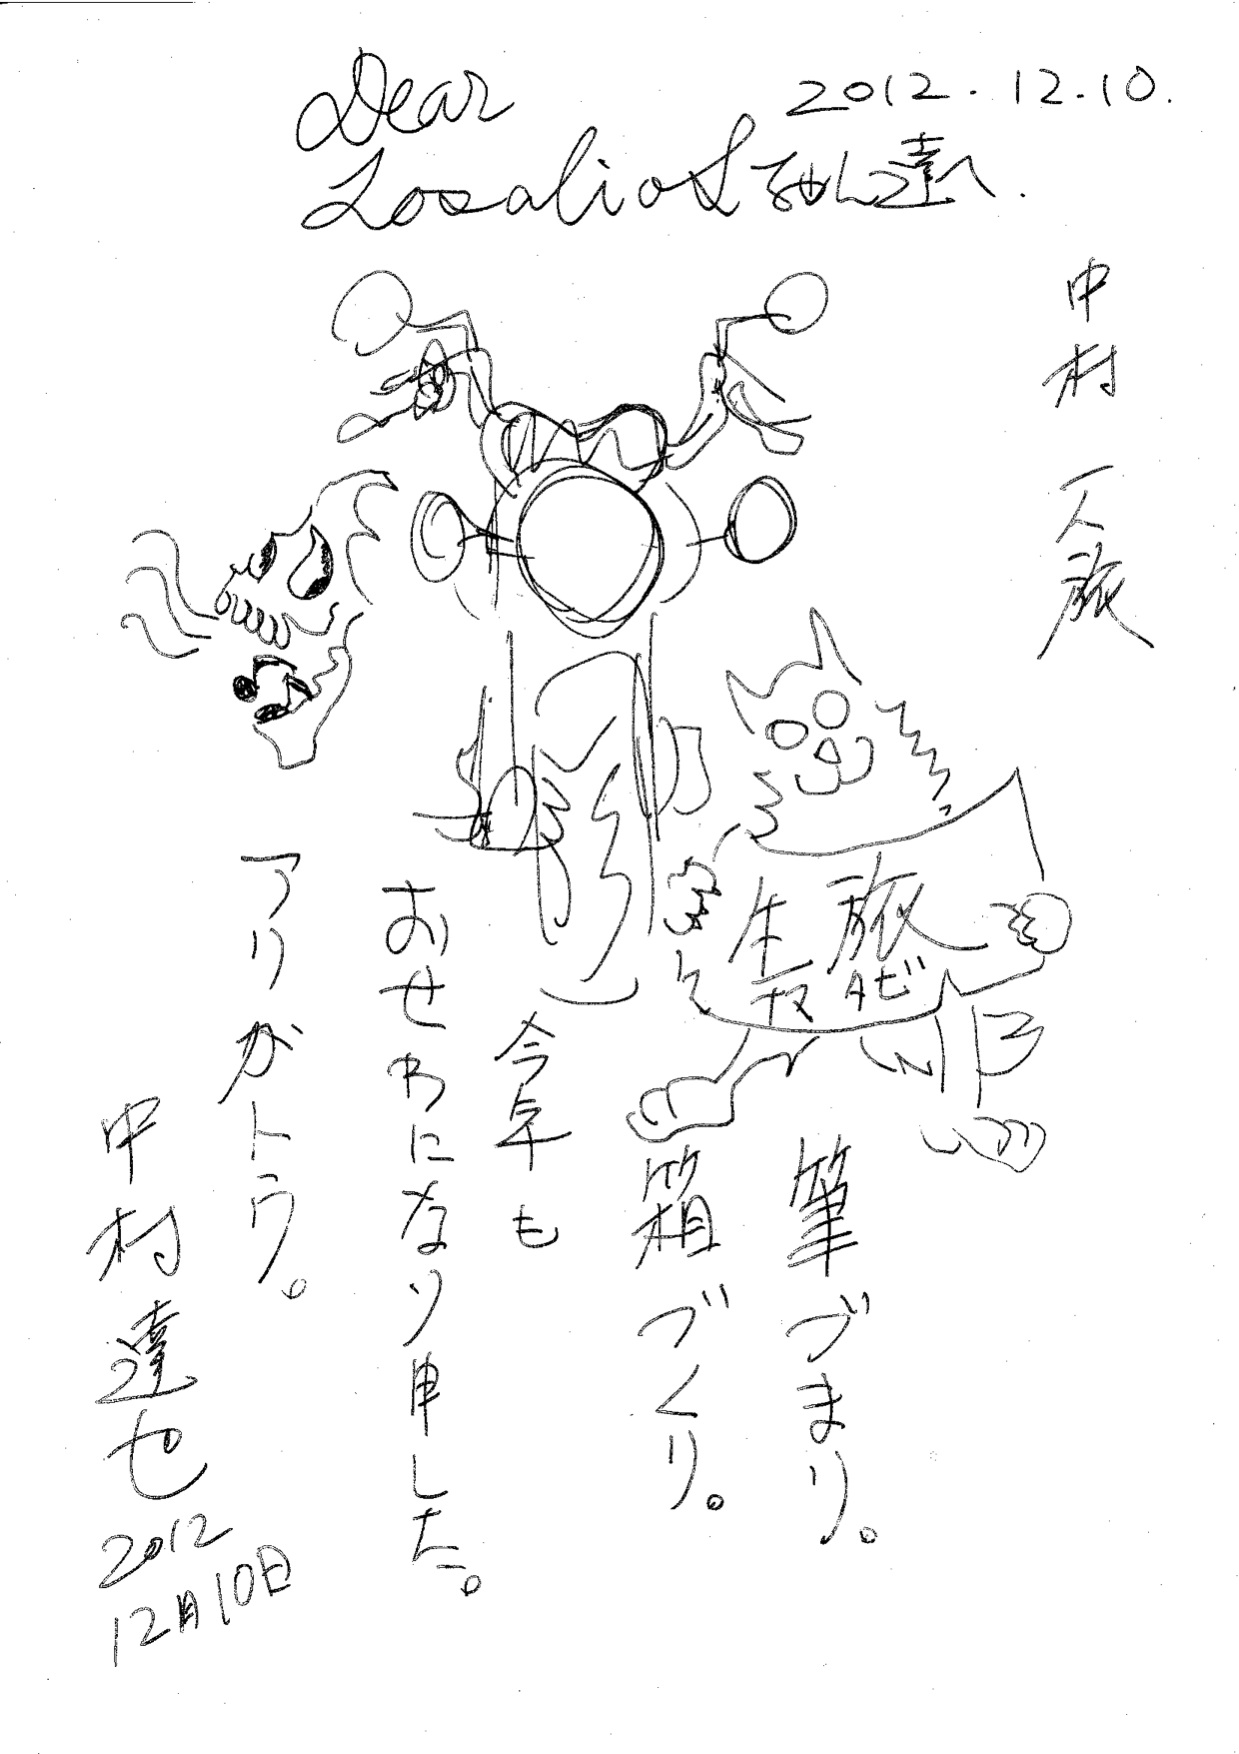 Dear
2012.12.10.
LosalioSちゃん達へ.
中村 一人旅
旅
タビ
筆づまり。
箱づくり。
今年も
おせわになり申した。
アリガトウ。
中村達也
2012
12月10日